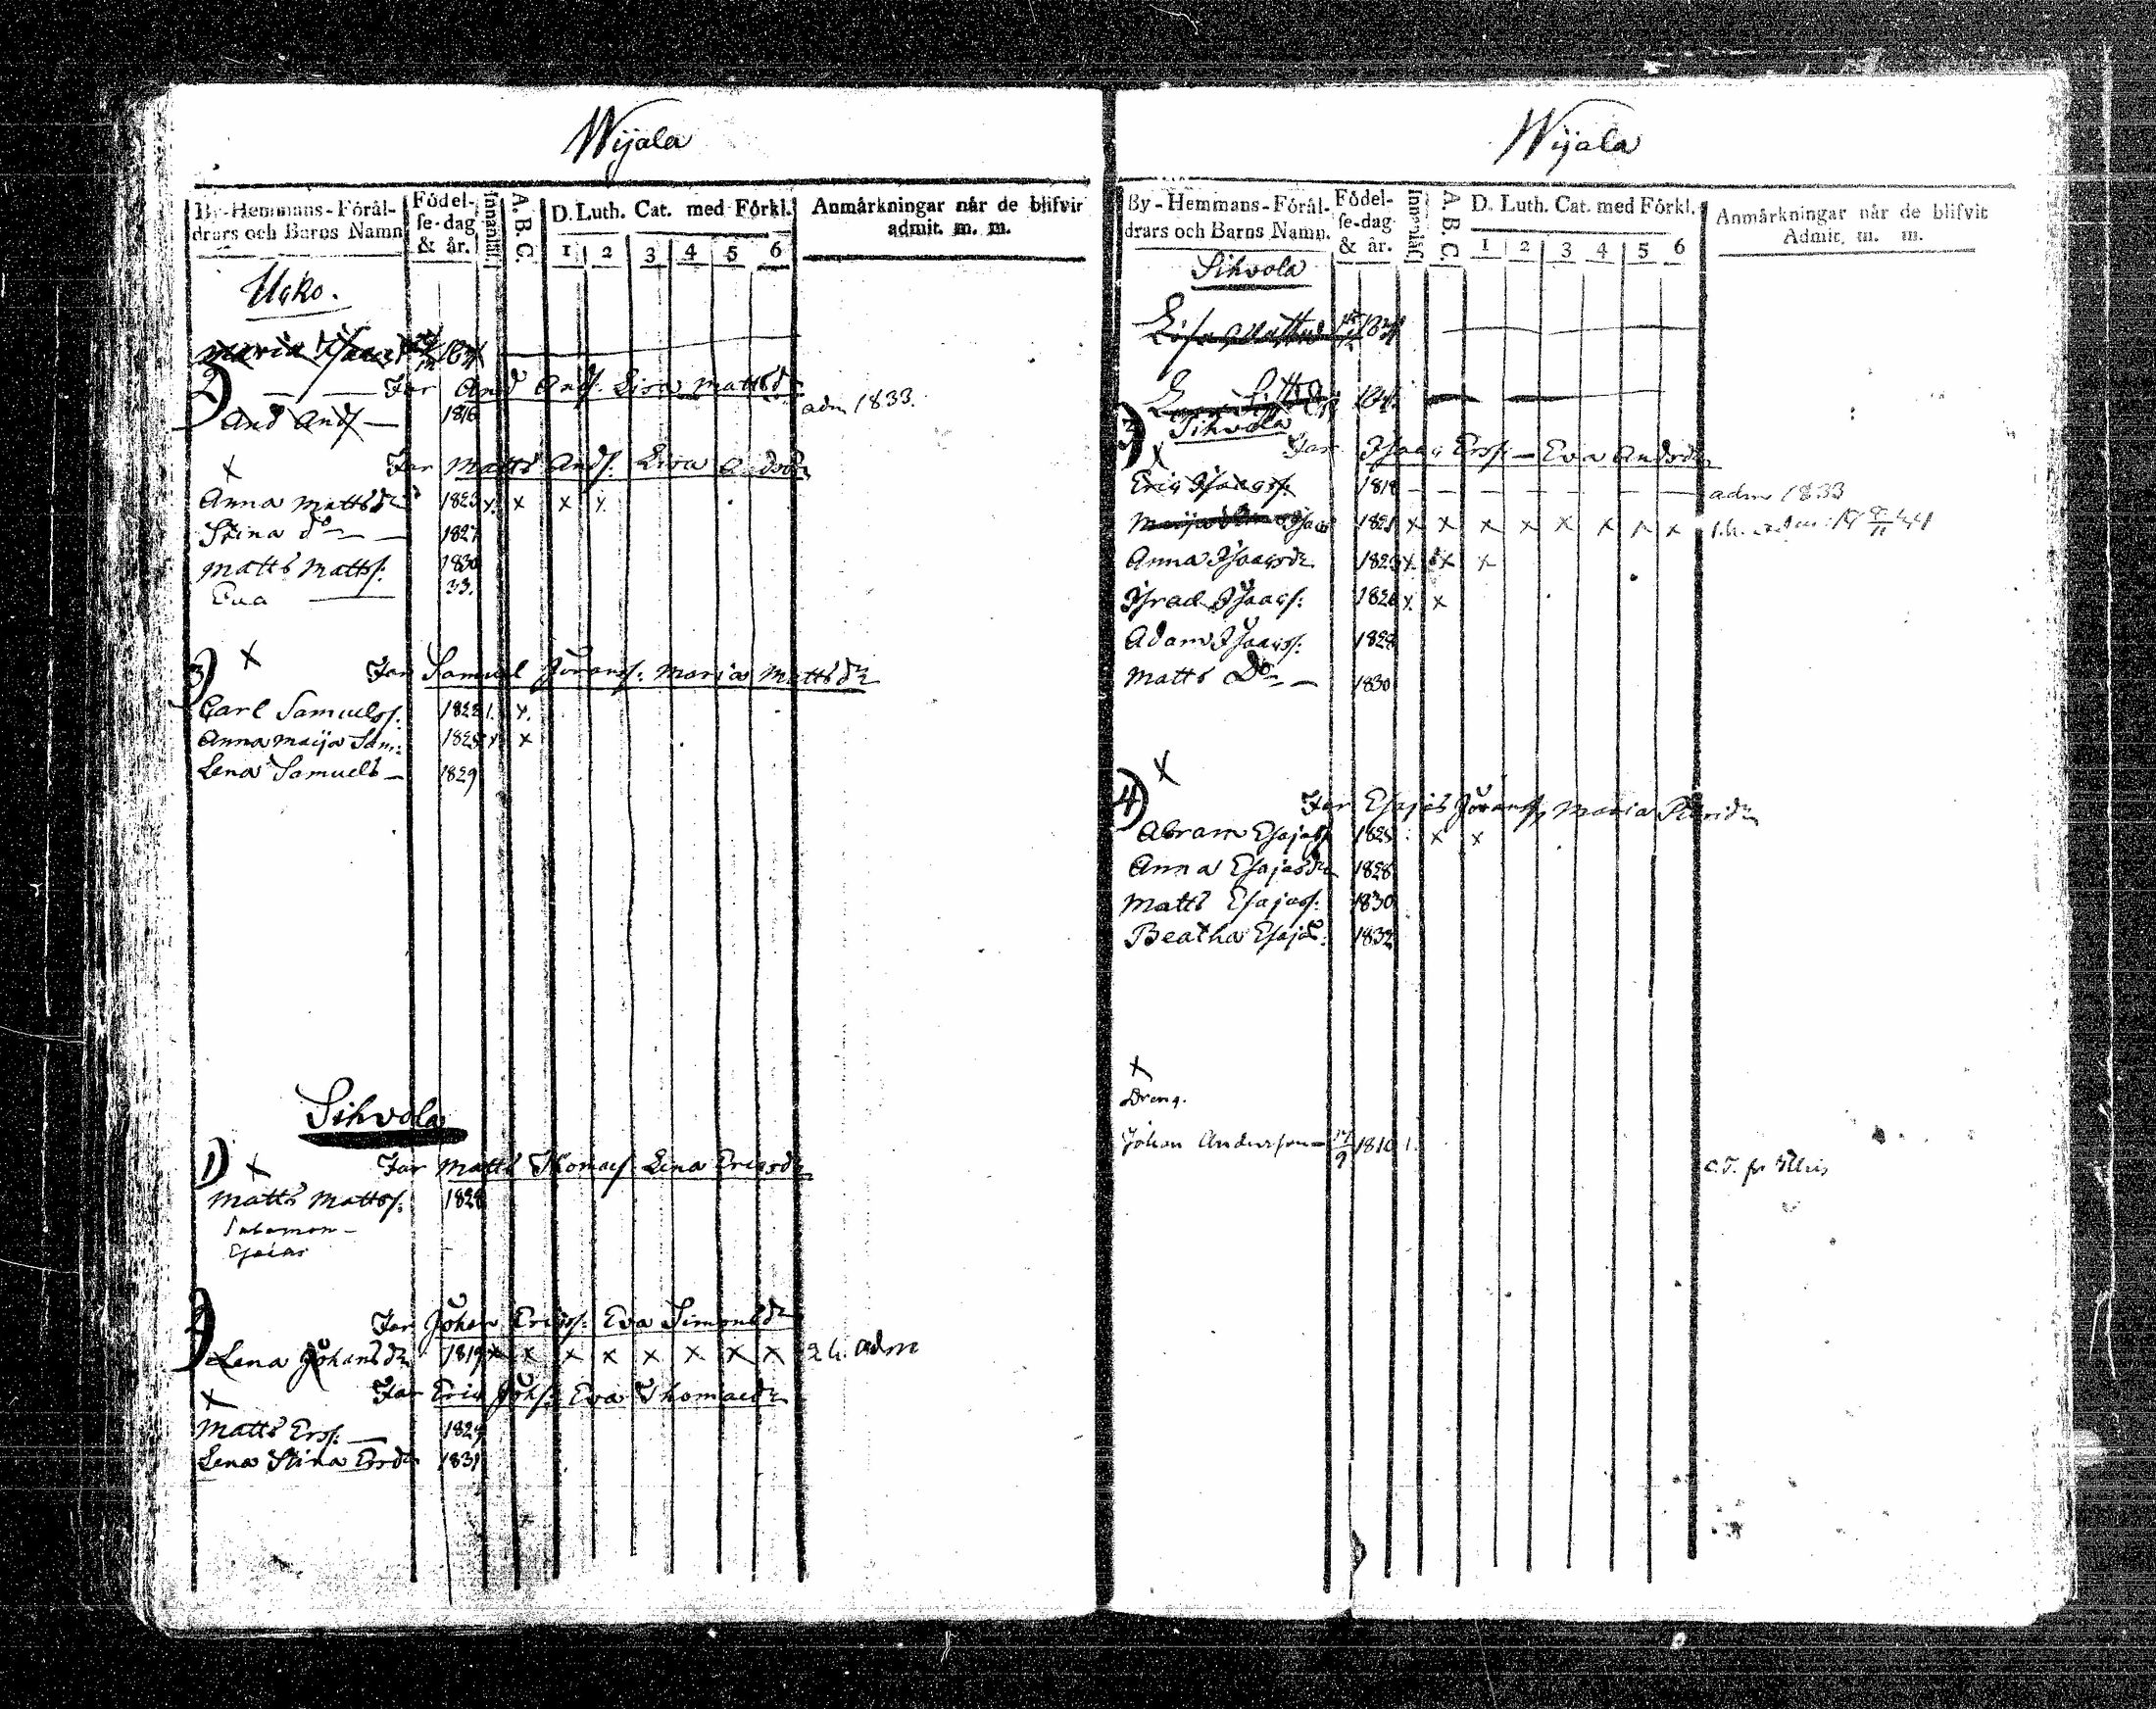 Wijala
By-Hemmans-Föräl-
drars och Barns Namn
Födel-
se-dag
& år.
Innanläs.
A. B. C.
D. Luth. Cat. med Förkl.
1 2 3 4 5 6
Anmärkningar når de blifvit
admit. m. m.
Ucko.
2) Far And Ands. Lisa Mattsdr
And Ands — 1816 adm 1833.
x Far Matts Ands. Lisa Andsdr
Anna Mattsdr 1823 x x x x
Stina do — 1827
Matts Matts. 1830
Eva — 33.
3) x Far Samuel Görans. Maria Mattsdr
Carl Samuelss. 1822 x.
Anna Maija Sam: 1825 x x
Lena Samuels — 1829
Sihvola
1) x Far Matts Thomass Lena Ericsdr
Matts Matts. 1828
Salamon —
Esaias
2) Far Johan Ericss. Eva Simonsdr
Lena Johansdr 1819 x x x x x x x x adm
x Far Eric Johs. Eva Thomaedr
Matts Erss. — 1829
Lena Stina Ersdr 1831
Wijala
By-Hemmans-Föräl-
drars och Barns Namn.
Födel-
se-dag
& år.
Innanläs.
A. B. C.
D. Luth. Cat. med Förkl.
1 2 3 4 5 6
Anmärkningar når de blifvit
Admit. m. m.
Sihvola
Sihvola
3) x Far Isaac Erss. — Eva Andsdr
Eric Isaacss. 1818 — — — — — — — adm 1833
1821 x x x x x x x x
Anna Isaacsdr 1823 x x x
Israel Isaacs: 1826 x x
Adam Isaacss. 1828
Matts Do — 1830
4) x Far Esajas Göranss, Maria
Abram Esajass 1825 x x
Anna Esajasdr 1828
Matts Esajass. 1830
Beatha Esajas: 1832
x
Dreng.
Johan Andersson — 1810 1.